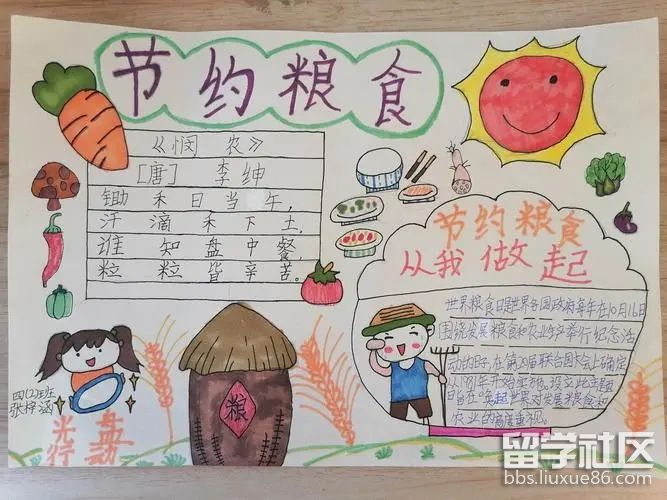 节约粮食
《悯农》
[唐] 李绅
锄禾日当午,
汗滴禾下土,
谁知盘中餐,
粒粒皆辛苦。
节约粮食
从我做起
世界粮食日是世界各国政府每年在10月16日
围绕发展粮食和农业生产举行纪念活
动的日子,在第20届联合国大会上确定
从1981年开始
农业的高度重视。
粮
四(2)班
张梓涵
光盘
行动
留学社区
bbs.liuxue86.com